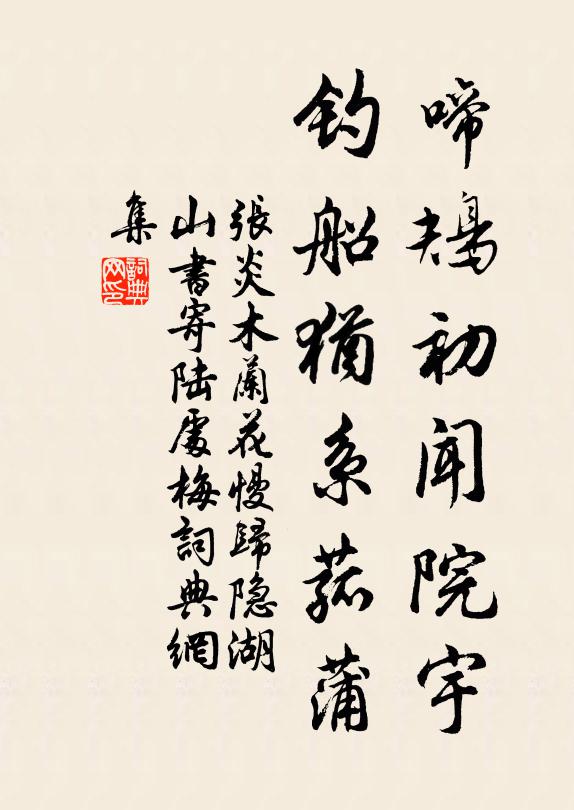 啼鴂初聞院宇
釣船猶系菰蒲
張炎木蘭花慢歸隐湖
山書寄陸處梅詞典網
集
詞典
网印